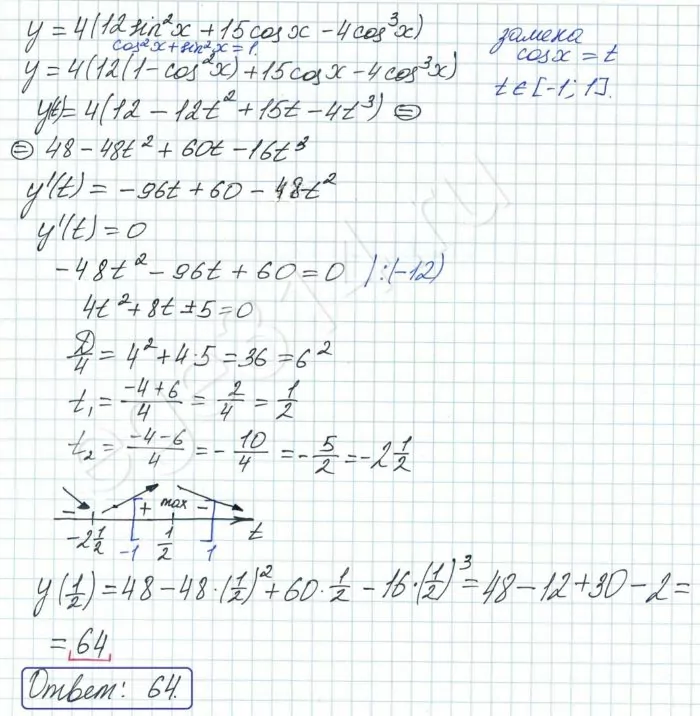 y = 4(12sin²x + 15cosx - 4cos³x)
cos²x + sin²x = 1.
замена
cosx = t
t ∈ [-1; 1].
y = 4(12(1 - cos²x) + 15cosx - 4cos³x)
y(t) = 4(12 - 12t² + 15t - 4t³) ⊜
⊜ 48 - 48t² + 60t - 16t³
y'(t) = -96t + 60 - 48t²
y'(t) = 0
-48t² - 96t + 60 = 0 |:(-12)
4t² + 8t - 5 = 0
D/4 = 4² + 4·5 = 36 = 6²
t₁ = (-4+6)/4 = 2/4 = 1/2
t₂ = (-4-6)/4 = -10/4 = -5/2 = -2 1/2
- + max -
-2 1/2 -1 1/2 1 t
y(1/2) = 48 - 48·(1/2)² + 60·1/2 - 16·(1/2)³ = 48 - 12 + 30 - 2 =
= 64
Ответ: 64.